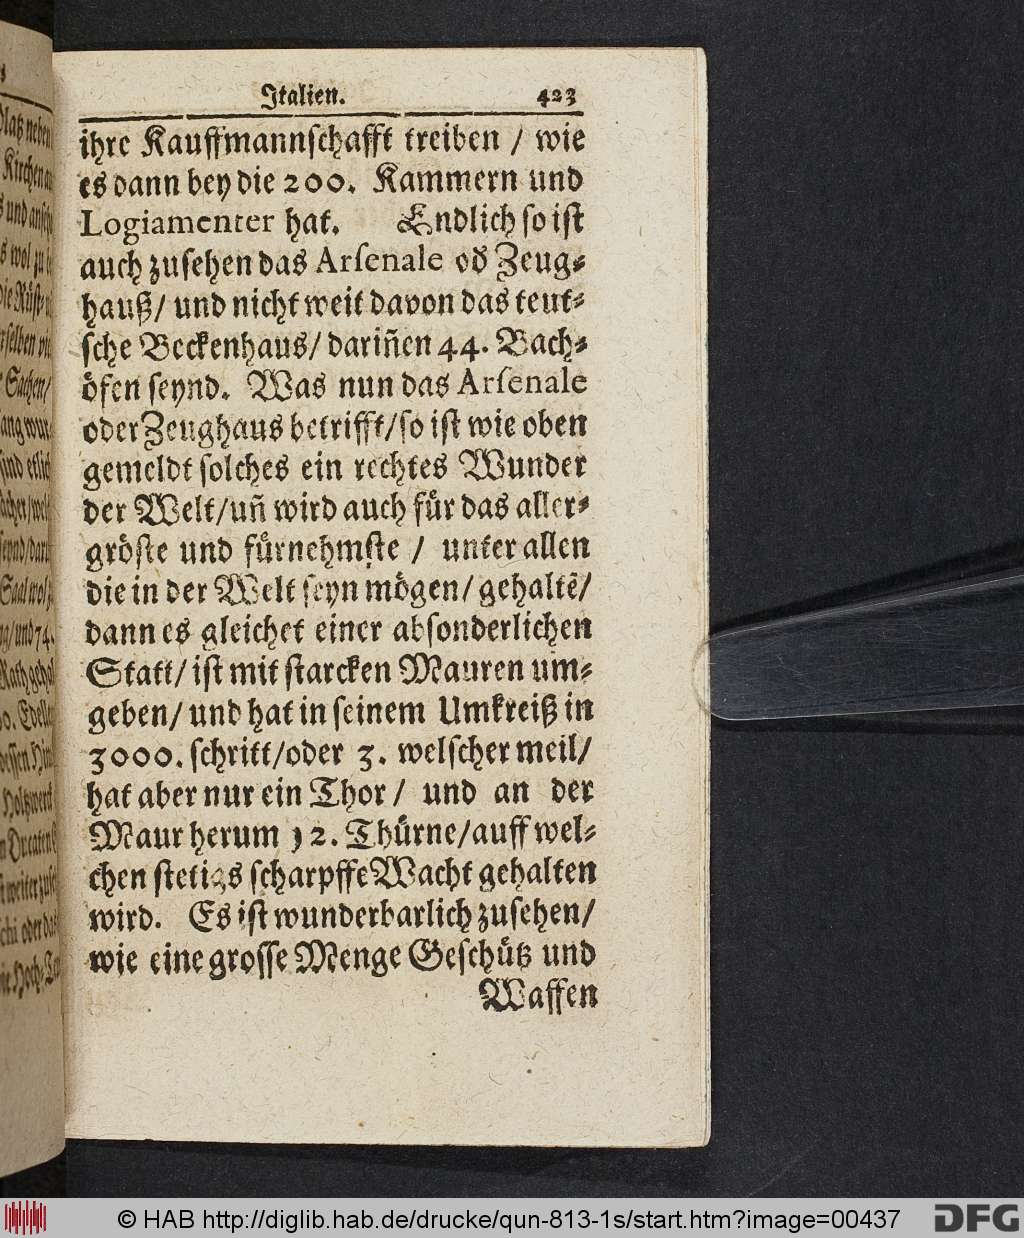 Italien. 423
ihre Kauffmannschafft treiben / wie
es dann bey die 200. Kammern und
Logiamenter hat. Endlich so ist
auch zusehen das Arſenale od Zeug⸗
hauß / und nicht weit davon das teut⸗
sche Beckenhaus / dariñen 44. Bach⸗
öfen seynd. Was nun das Arſenale
oder Zeughaus betrifft / so ist wie oben
gemeldt solches ein rechtes Wunder
der Welt / uñ wird auch für das aller⸗
gröste und fürnehmste / unter allen
die in der Welt seyn mögen / gehaltẽ /
dann es gleichet einer absonderlichen
Statt / ist mit starcken Mauren um⸗
geben / und hat in seinem Umkreiß in
3000. schritt / oder 3. welscher meil /
hat aber nur ein Thor / und an der
Maur herum 12. Thürne / auff wel⸗
chen stetigs scharpffe Wacht gehalten
wird. Es ist wunderbarlich zusehen /
wie eine grosse Menge Geschütz und
Waffen
© HAB http://diglib.hab.de/drucke/qun-813-1s/start.htm?image=00437
DFG